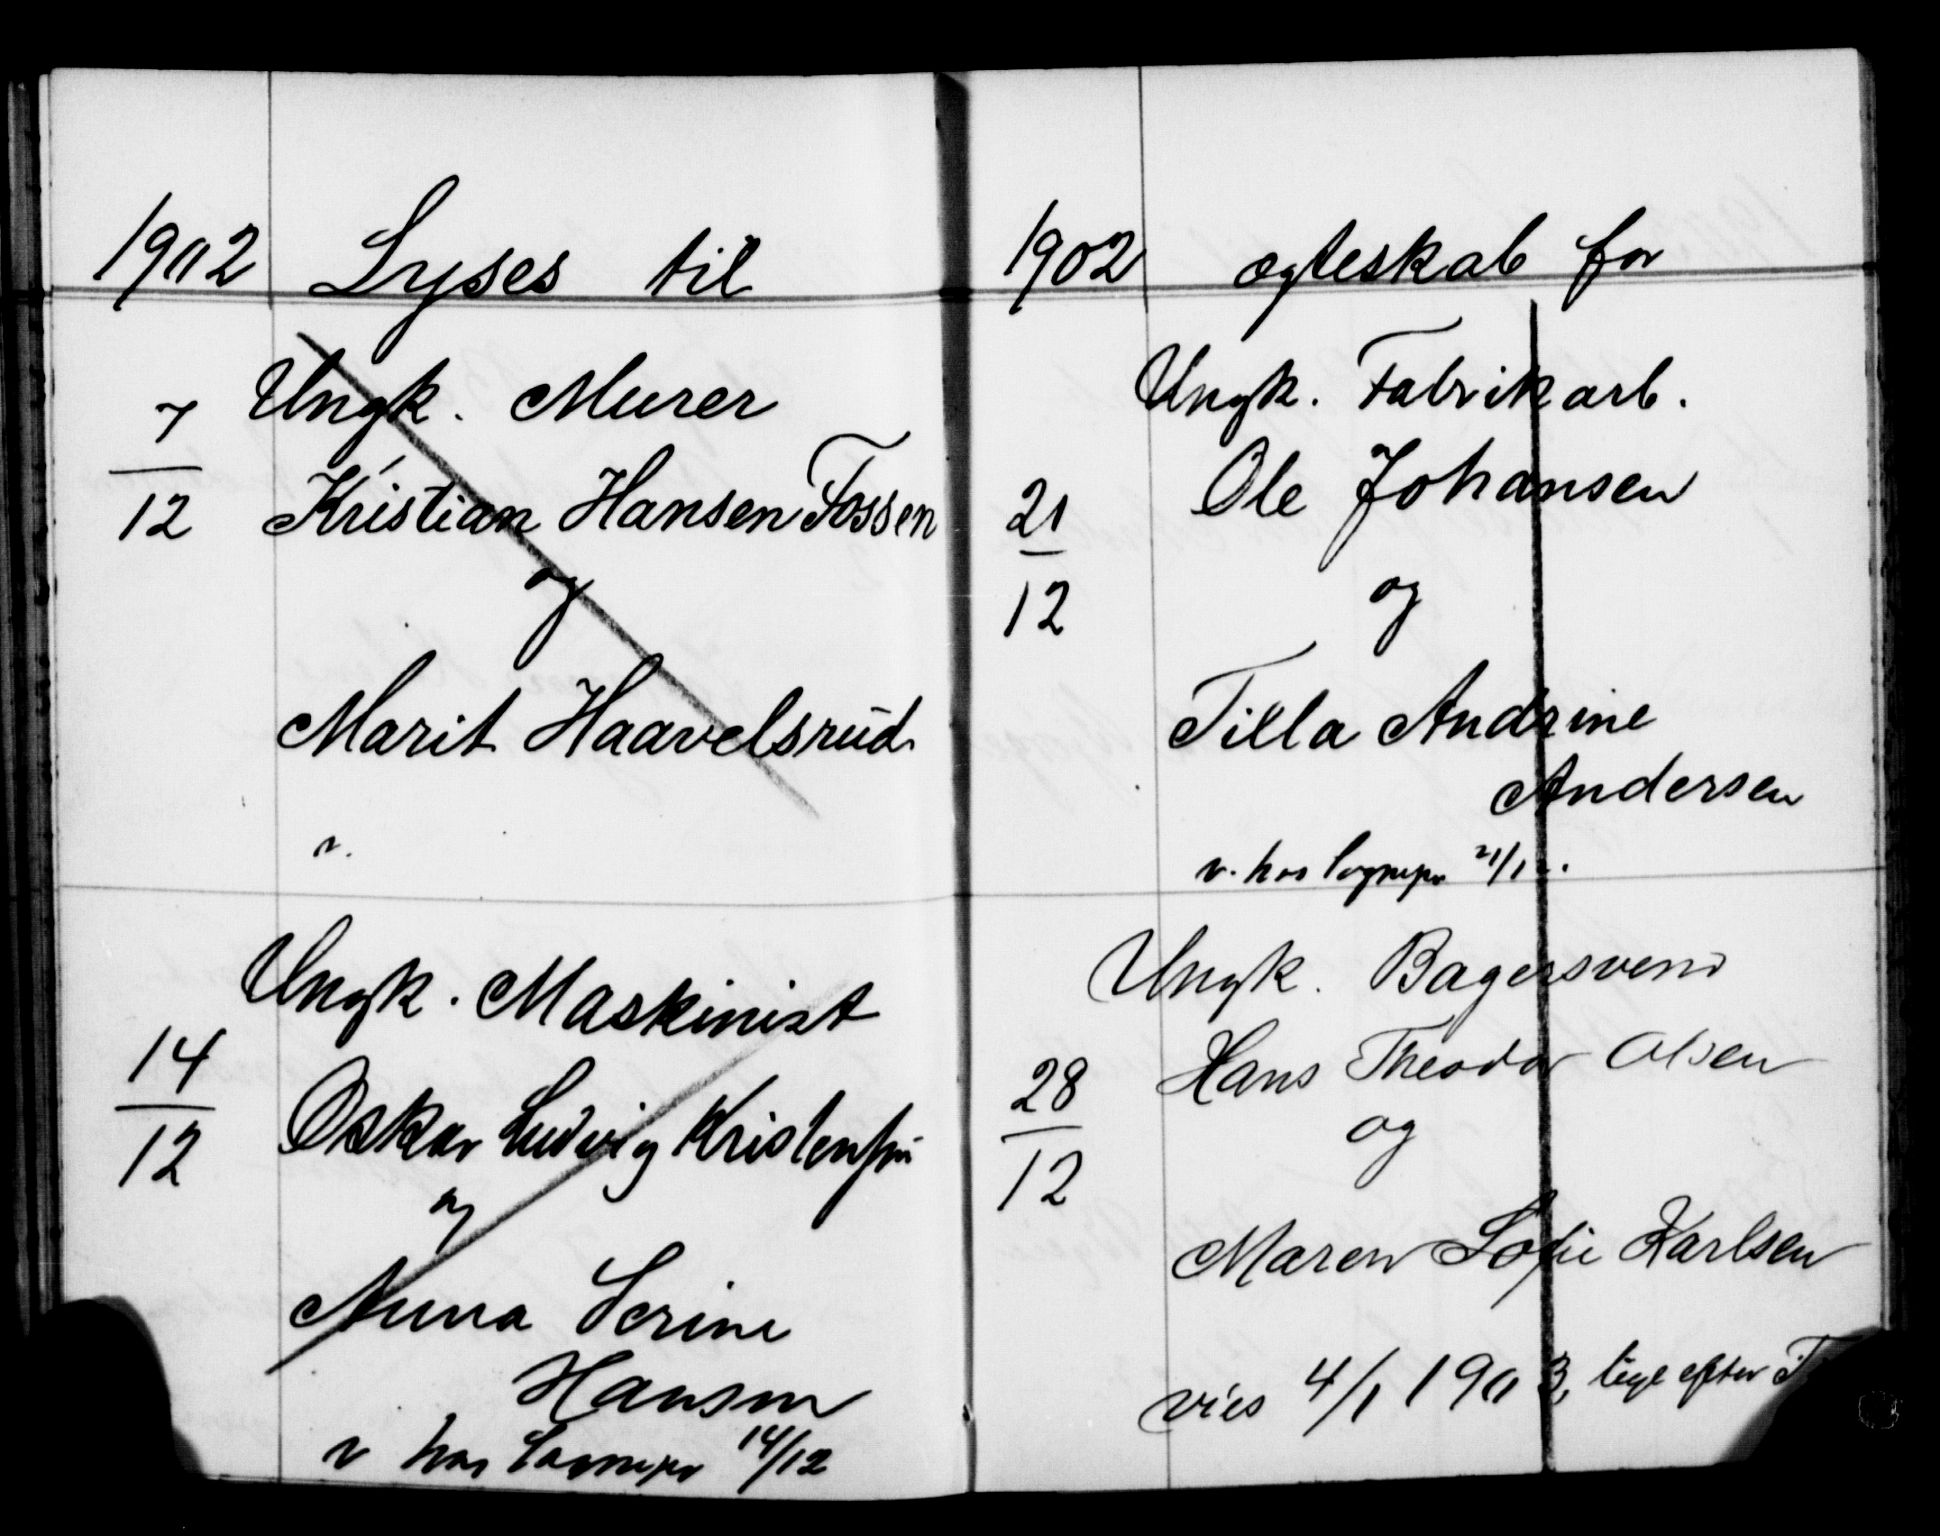 1902 Lyses til
7/12 Ungk. Murer
Kristian Hansen Fossen
og
Marit Haavelsrud
v.
Ungk. Maskinist
14/12
Oskar Ludvig Kristensen
og
Anna Serine
Hansen
v hos Sognepr 14/12
1902 ægteskab for
Ungk. Fabrikarb.
21/12 Ole Johansen
og
Tilla Andrine
Andersen
v. hos Sognepr 21/1
Ungk. Bagersvend
28/12 Hans Theodor Olsen
og
Maren Sofie Karlsen
vies 4/1 1903, lige efter